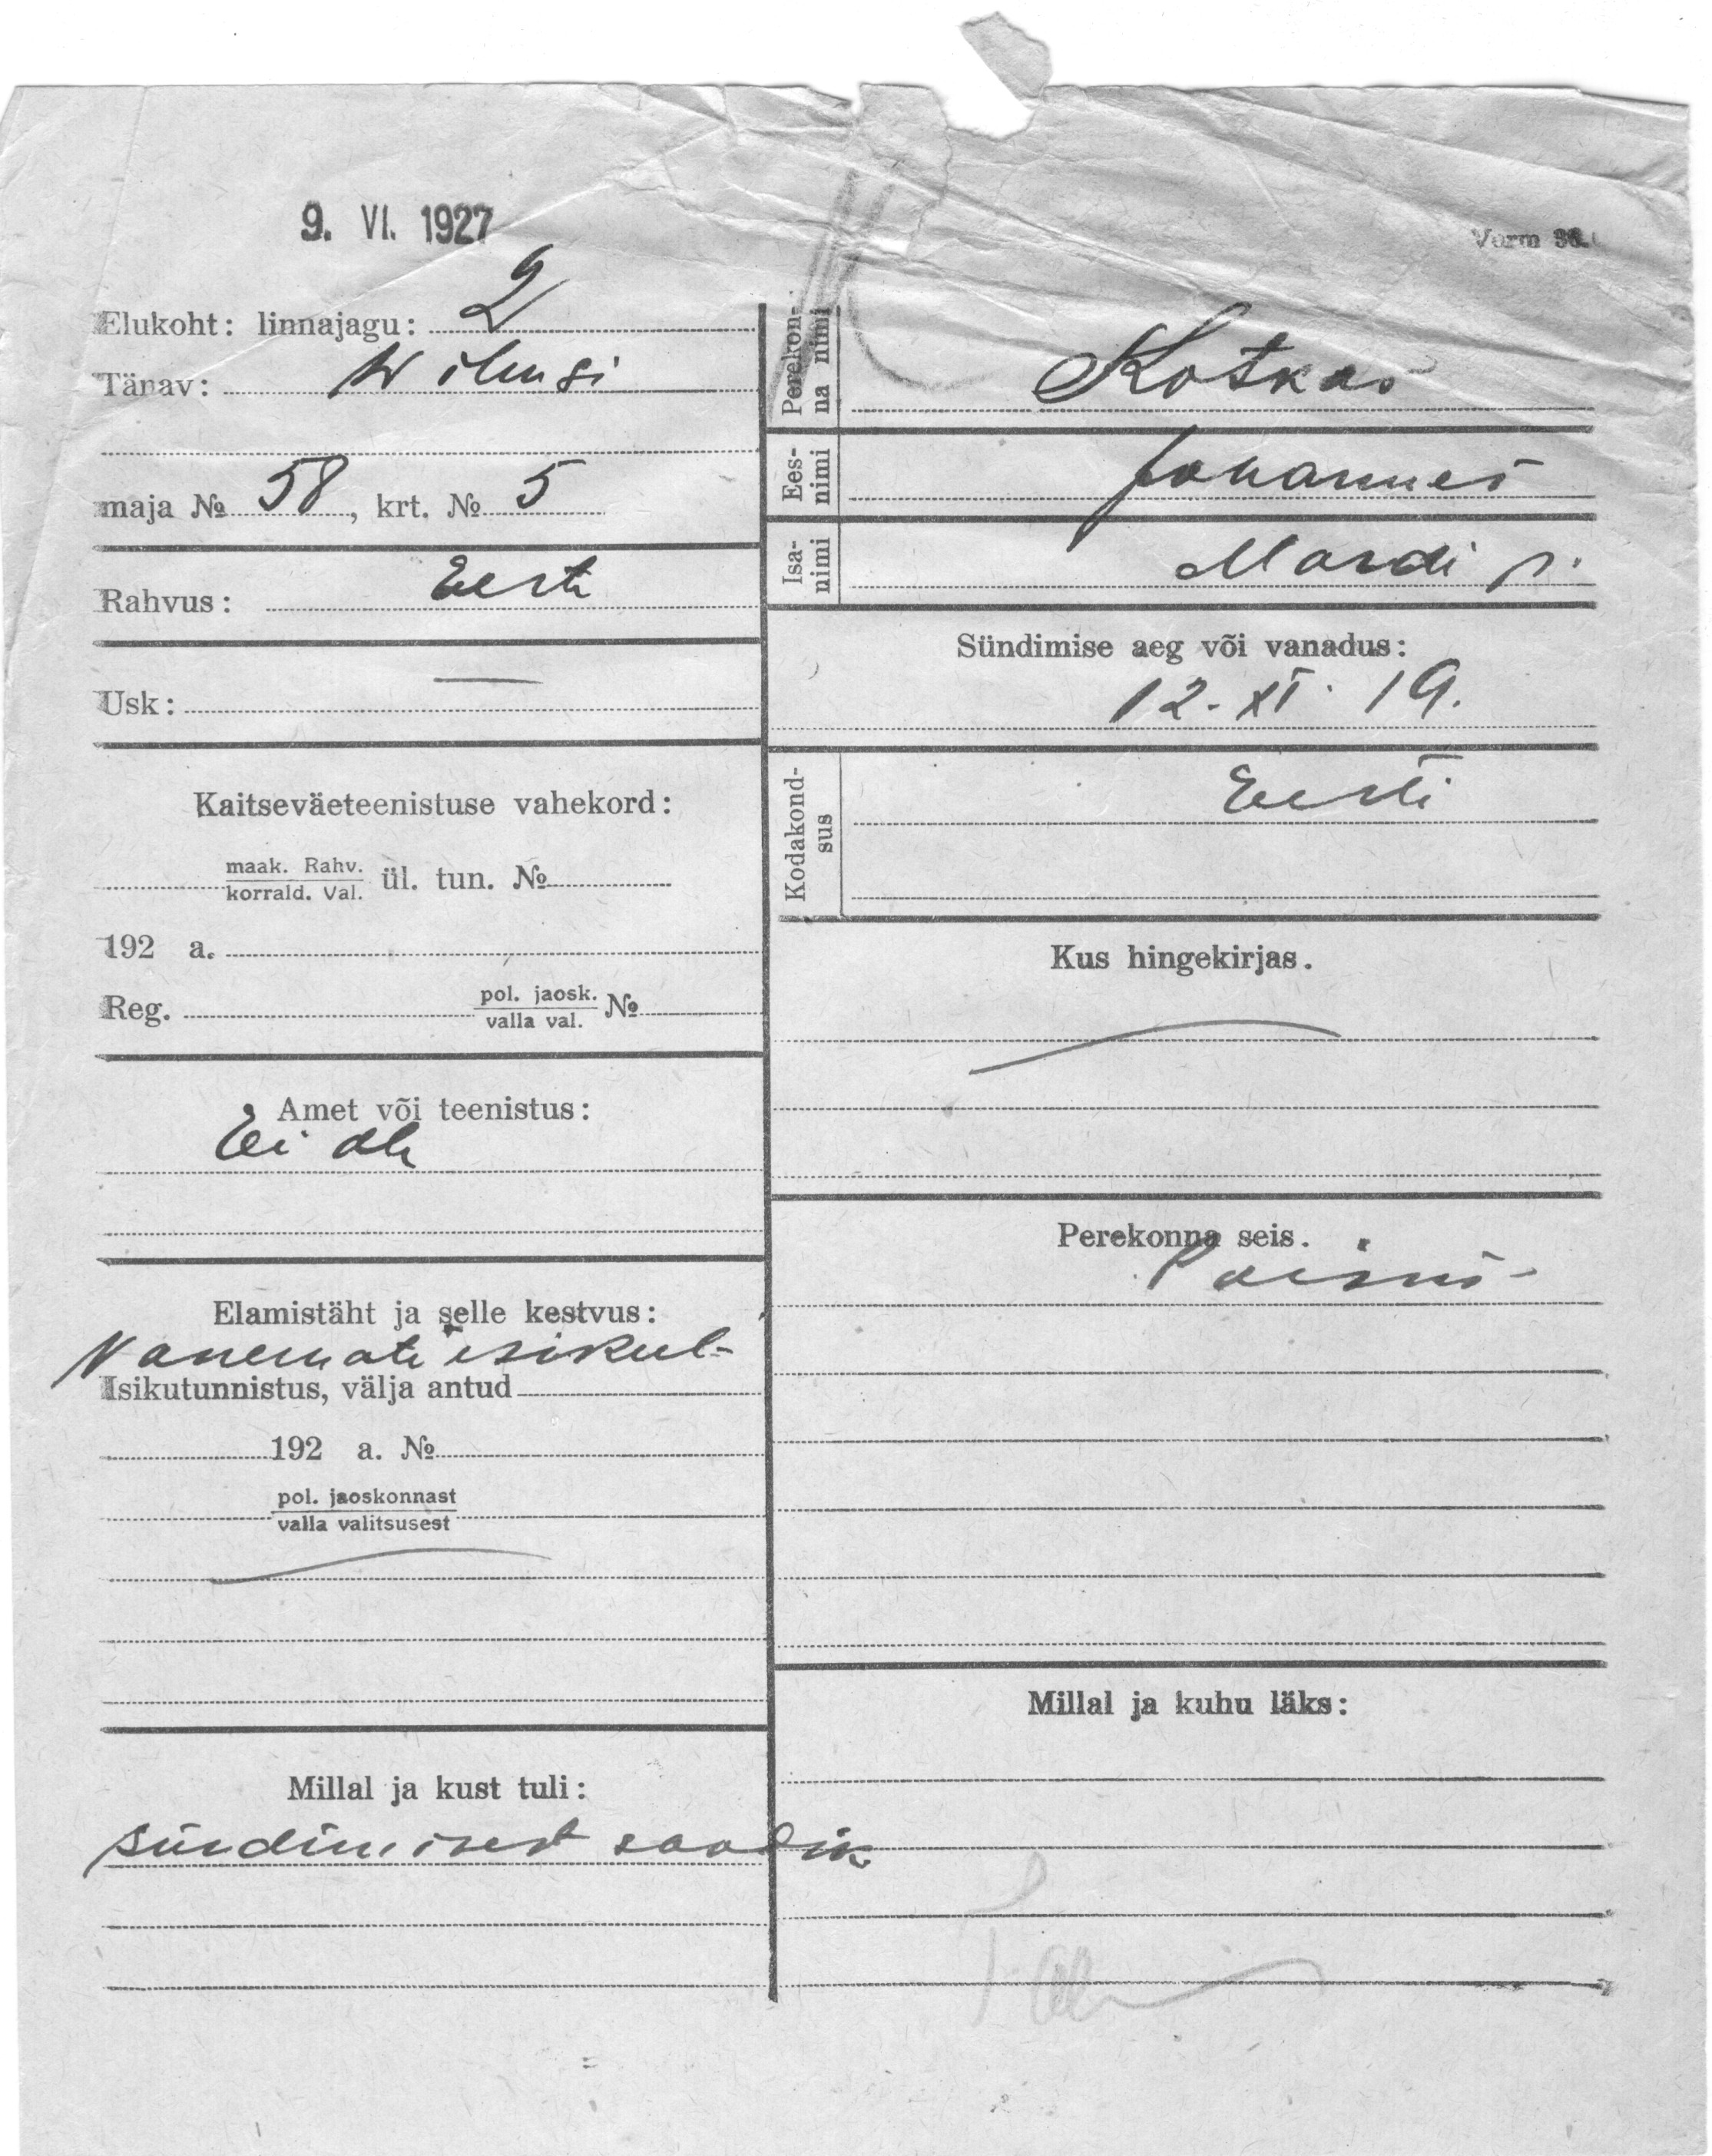 9. VI. 1927
Vorm 36.
Elukoht: linnajagu: 2
Tänav: Wilmsi
maja № 58, krt. № 5
Rahvus: Eesti
Usk: —
Kaitseväeteenistuse vahekord:
maak. Rahv.
korrald. Val. ül. tun. №
192 a.
Reg. pol. jaosk. №
valla val.
Amet või teenistus:
Ei ole
Elamistäht ja selle kestvus:
Vanemate isikut-
Isikutunnistus, välja antud
192 a. №
pol. jaoskonnast
valla valitsusest
Millal ja kust tuli:
sündimisest saadik
Perekon-
na nimi
Kotkas
Ees-
nimi
Johannes
Isa-
nimi
Mardi p.
Sündimise aeg või vanadus:
12. XI. 19.
Kodakond-
sus
Eesti
Kus hingekirjas.
Perekonna seis.
Millal ja kuhu läks: